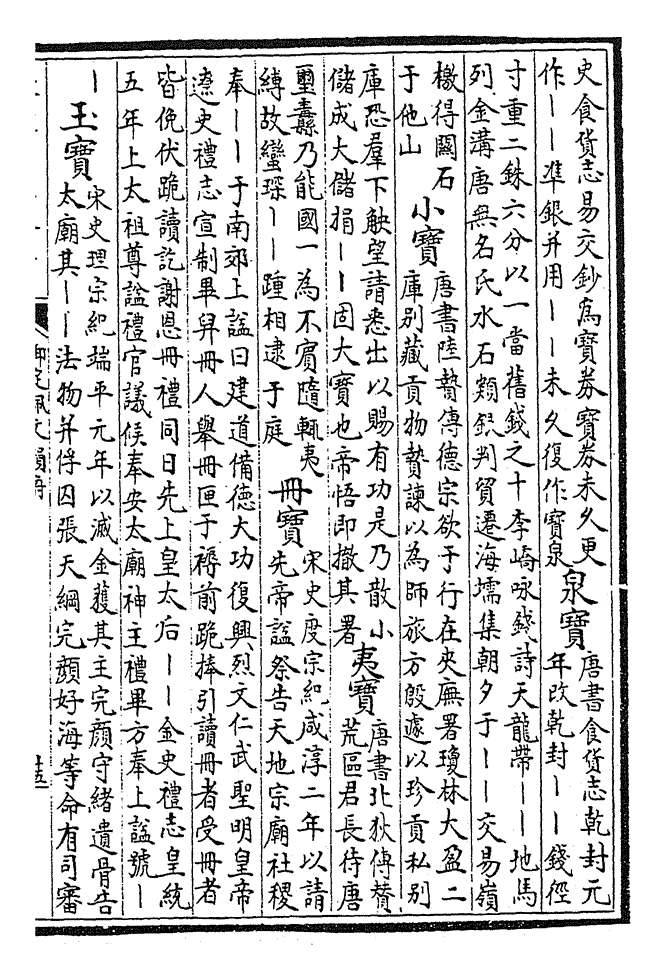 史食貨志易交鈔為寶券寶券未久更
作丨丨準銀并用丨丨未久復作寶泉
泉寶
唐書食貨志乾封元
年改乾封丨丨錢徑
寸重二銖六分以一當舊錢之十李嶠咏錢詩天龍帶丨丨地馬
列金溝唐無名氏水石類銀判貿遷海壖集朝夕于丨丨交易嶺
檄得闗石
于他山
小寶
唐書陸贄傳德宗欲于行在夾廡署瓊林大盈二
庫别藏貢物贄諫以為師旅方殷遽以珍貢私别
庫恐羣下觖望請悉出以賜有功是乃散小
儲成大儲捐丨丨固大寶也帝悟即撤其署
夷寶
唐書北狄傳贊
荒區君長待唐
璽纛乃能國一為不賓隨輒夷
縛故蠻琛丨丨踵相逮于庭
冊寶
宋史度宗紀咸淳二年以請
先帝諡祭告天地宗廟社稷
奉丨丨于南郊上諡曰建道備德大功復興烈文仁武聖明皇帝
遼史禮志宣制畢舁冊人舉冊匣于褥前跪捧引讀冊者受冊者
皆俛伏跪讀訖謝恩冊禮同日先上皇太后丨丨金史禮志皇統
五年上太祖尊諡禮官議候奉安太廟神主禮畢方奉上諡號丨
丨
玉寶
宋史理宗紀端平元年以滅金獲其主完顔守緒遺骨告
太廟其丨丨法物并俘囚張天綱完顔好海等命有司審